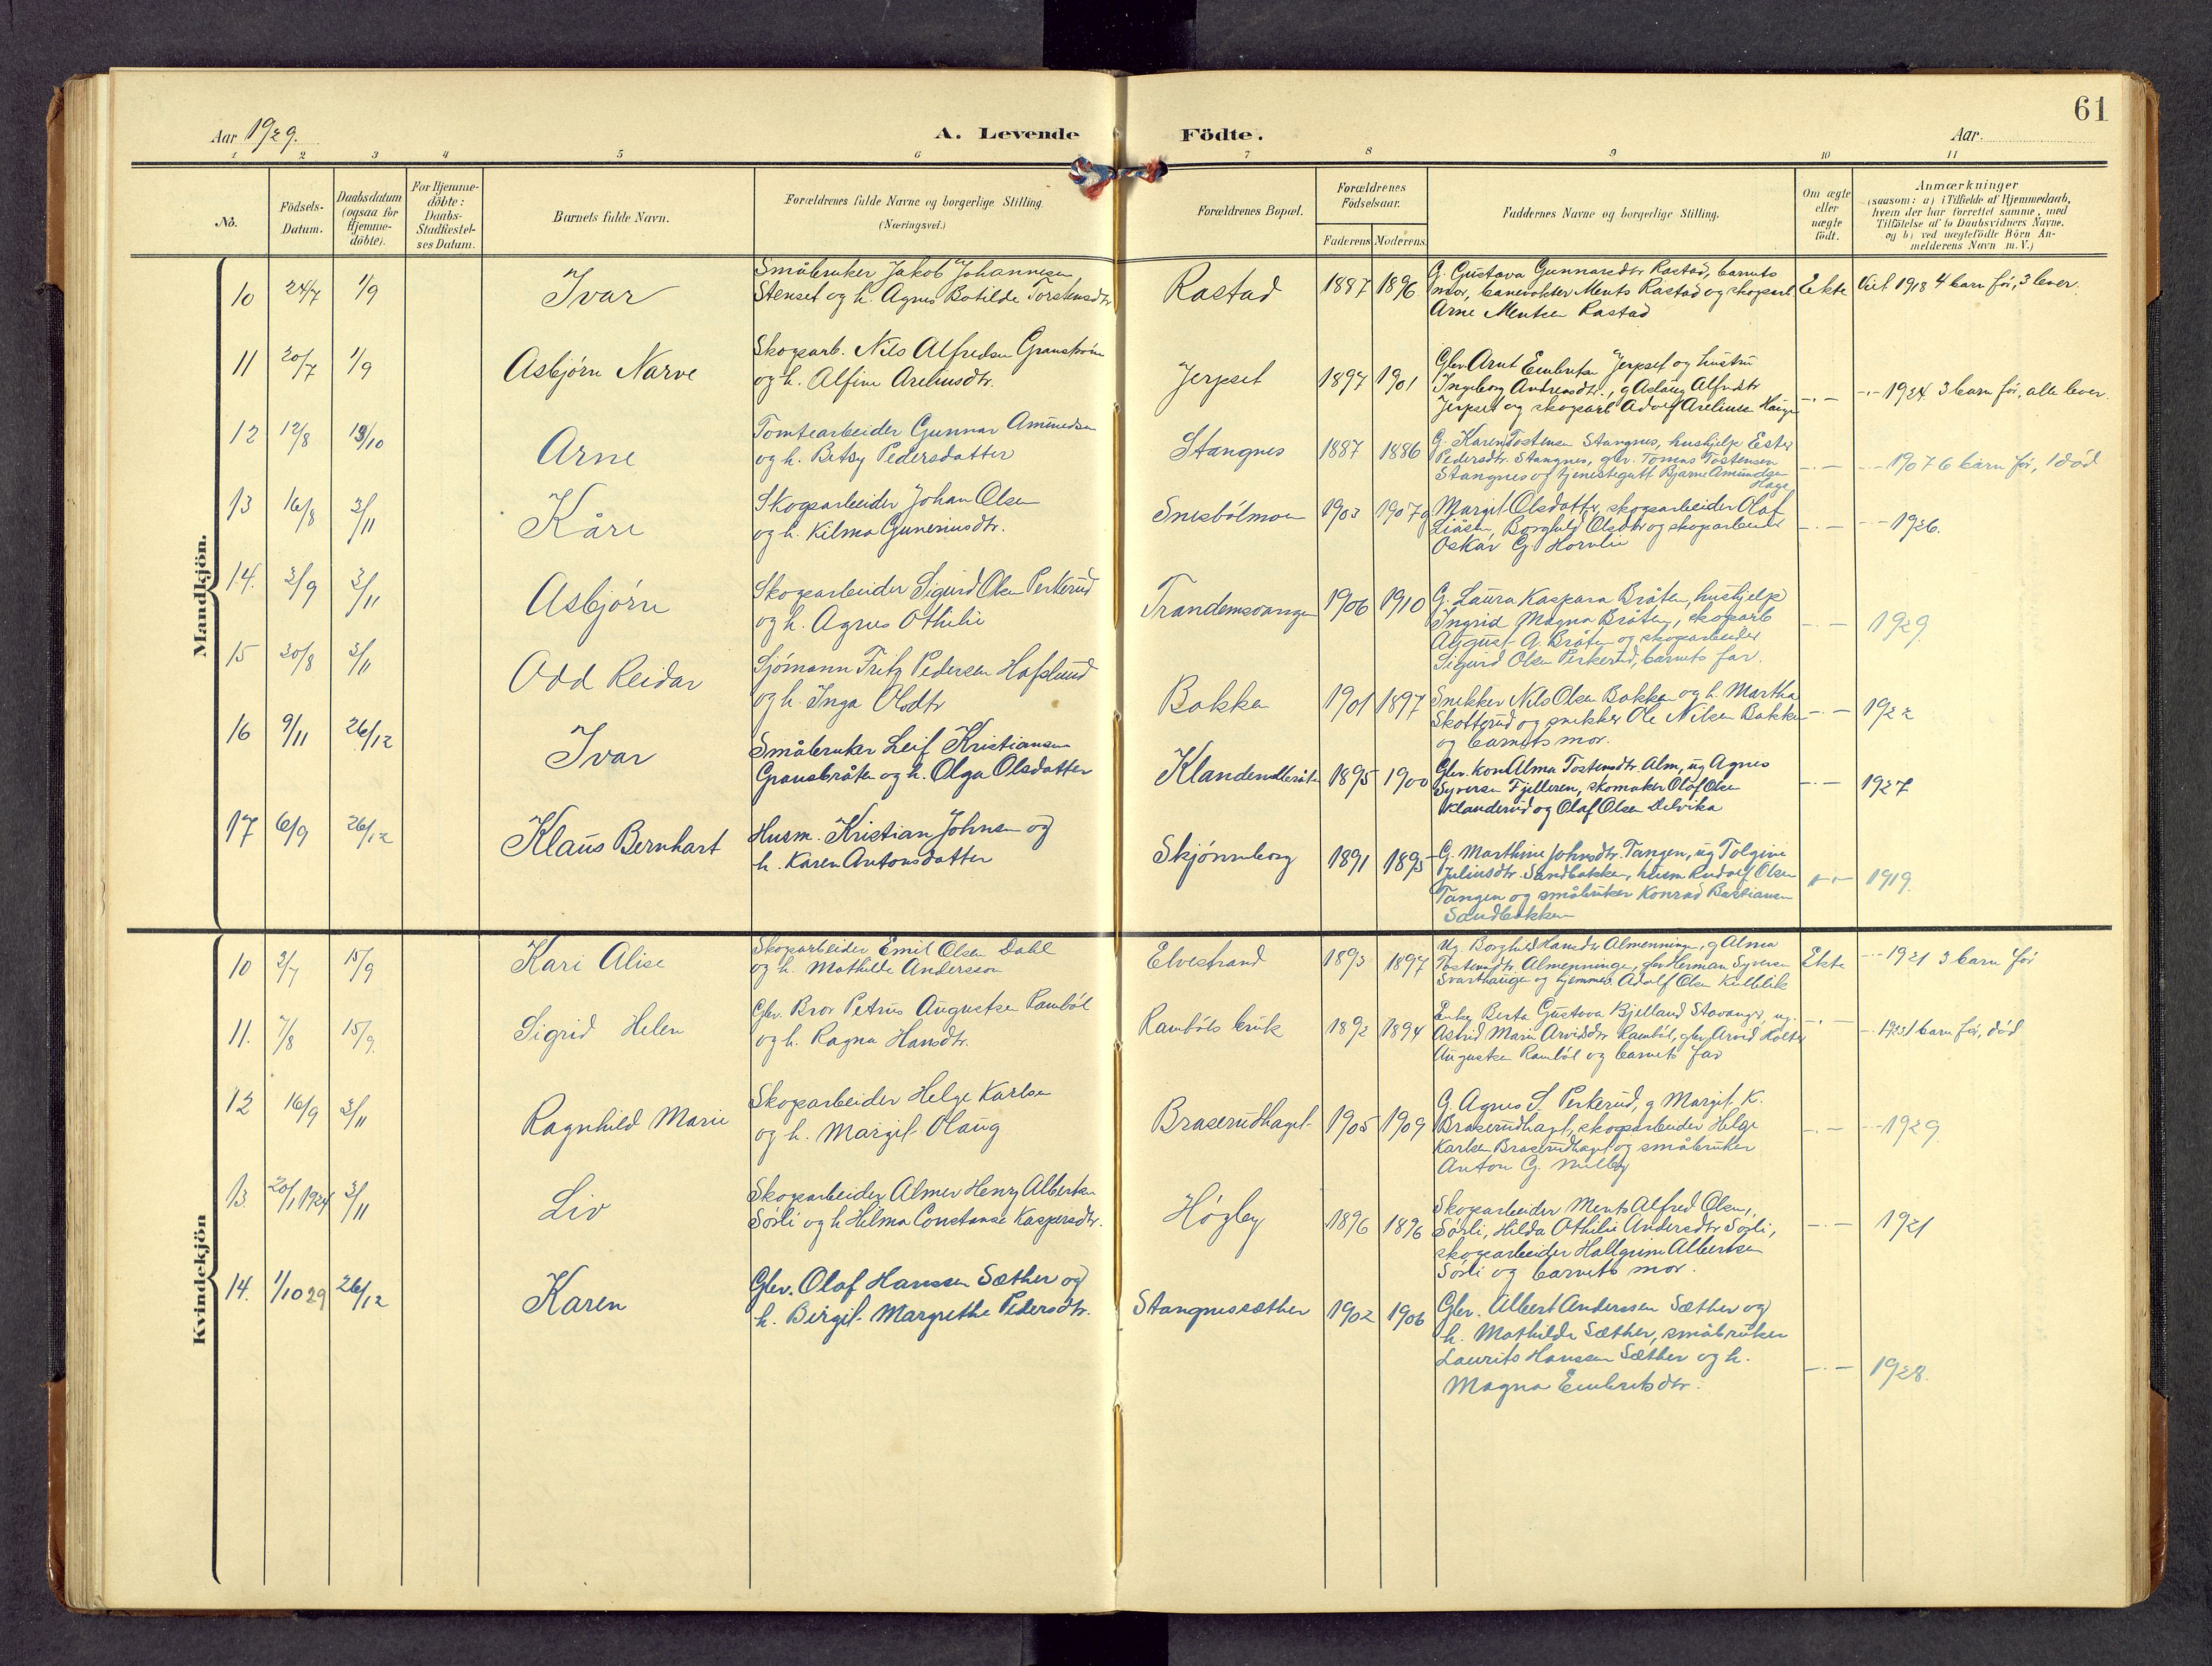 61
Aar 1929.
A. Levende Födte.
Aar.
1 2 3 4 5 6 7 8 9 10 11
No.
Födsels-
Datum.
Daabsdatum
(ogsaa for
Hjemme-
döbte).
For Hjemme-
döbte:
Daabs-
Stadfæstel-
ses Datum.
Barnets fulde Navn.
Forældrenes fulde Navne og borgerlige Stilling.
(Næringsvei.)
Forældrenes Bopæl.
Forældrenes
Födselsaar.
Faderens Moderens
Faddernes Navne og borgerlige Stilling.
Om ægte
eller
uægte
födt.
Anmærkninger
(saasom: a) i Tilfælde af Hjemmedaab,
hvem der har forrettet samme, med
Tilföielse af to Daabsvidners Navne.
og b) ved uægtefödte Börn An-
melderens Navn m. V.)
Mandkjön.
10 24/7 1/9
Ivar
Småbruker Jakob Johannesen
Stenset og h. Agnes Botilde Torstensdtr
Rastad
1887 1896
G. Gustava Gunnarsdtr Rastad, barnets
mor, banevokter Ments Rastad og skogsarb
Arne Mentsen Rastad
Ekte
Viet 1918 4 barn før, 3 lever.
11 20/7 1/9
Asbjørn Narve
Skogsarb. Nils Alfredsen Granstrøm
og h. Alfine Areliusdtr.
Jerpset
1897 1901
Gbr Arnt Embretsen Jerpset og hustru
Ingeborg Andreasdtr., g Aslaug Alfrdtr
Jerpset og skogsarb Adolf Areliusen Haugen
-.-
-.- 1924 3 barn før, alle lever.
12 12/8 13/10
Arne
Tomtearbeider Gunnar Amundsen
og h. Betsy Pedersdatter
Stangnes
1887 1886
G. Karen Tostensen Stangnes, hushjelp Ester
Pedersdtr. Stangnes, gbr. Tomas Tostensen
Stangnes og tjenestegutt Bjarne Amundsen
Hage
-.-
-.- 1907 6 barn før, 1 død
13 16/8 3/11
Kåre
Skogsarbeider Johan Olsen
og h. Hilma Gunerius dtr.
Snesbølmoen
1903 1907
g Margit Olsdatter, skogsarbeider Olaf
Liåsen, Borghild Olsdtr og skogsarbeider
Oskar G. Hornlie
-.-
-.- 1926.
14. 3/9 3/11
Asbjørn
Skogsarbeider Sigurd Olsen Perkerud
og h. Agnes Othilie
Trandemsvangen
1906 1910
G. Laura Kaspara Bråten, hushjelp
Ingrid Magna Bråten, skogsarb
August A. Bråten og skogsarbeider
Sigurd Olsen Perkerud, barnets far.
-.-
1929.
15 30/8 3/11
Odd Reidar
Sjømann Fritz Pedersen Hafslund
og h. Inga Olsdtr
Bakken
1901 1897
Snekker Nils Olsen Bakken og h. Martha
Skotterud og snekker Ole Nilsen Bakken
og barnets mor.
-.-
1922
16 9/11 26/12
Ivar
Småbruker Leif Kristiansen
Gransbråten og h. Olga Olsdatter
1895 1900
Gbr. kon Alma Tostensdtr. Alm, ug Agnes
Syversen Fjelleren, skomaker Olaf Olsen
Klanderud og Olaf Olsen Delvika
-.-
1927
17 6/9 26/12
Klaus Bernhart
Husm. Kristian Johnsen og
h. Karen Antonsdatter
Skjønneborg
1891 1895
G. Marthine Johnsdtr. Tangen, ug Tolgine
Juliusdtr. Sandbakken, husm Rudolf Olsen
Tangen og småbruker Konrad Bastiansen
Sandbakken
-.-
1919.
Kvindekjön
10 3/7 15/9
Kari Alise
Skogsarbeider Emil Olsen Dahl
og h. Mathilde Andersson
Elvestrand
1893 1897
Ug. Borghild Hansdtr Almenningen, g Alma
Tostensdtr. Almenningen, gbr Herman Syversen
Svarthaugen og hjemmev. Adolf Olsen Kulblik
Ekte
-.- 1921 3 barn før
11. 7/8 15/9.
Sigrid Helen
Gbr. Bror Petrus Augustsen Rambøl
og h. Ragna Hansdtr.
Rambøls bruk
1892 1894
Enke Berta Gustava Bjelland Stavanger, ug.
Astrid Marie Arvidsdtr Rambøl, gbr Arvid Holter
Augustsen Rambøl og barnets far
-.-
1 barn før, død
12 16/9 3/11
Ragnhild Marie
Skogsarbeider Helge Karlsen
og h. Margit Olaug
Braserudhaget
1905 1909
G. Agnes S. Perkerud, g Margit K.
Braserudhaget, skogsarbeider Helge
Karlsen Braserudhaget og småbruker
Anton G. Melby
-.-
-.- 1929.
13. 20/1 1924 3/11
Liv
Skogsarbeider Almer Henry Albertsen
Sørli og h Hilma Constanse Kaspersdtr.
Høgby
1896 1896
Skogsarbeider Ments Alfred Olsen,
Sørli, Hilda Othilie Andersdtr Sørli,
skogsarbeider Hallgrim Albertsen
Sørli og barnets mor.
-.-
1921
14. 1/10 29 26/12
Karen
Gbr. Olaf Hanssen Sæther og
h. Birgit Margrethe Pedersdtr.
Stangnessæther
1902 1906
Gbr. Albert Anderssen Sæther og
h. Mathilde Sæther, småbruker
Laurits Hanssen Sæther og h.
Magna Embretsdtr.
-.-
1928.